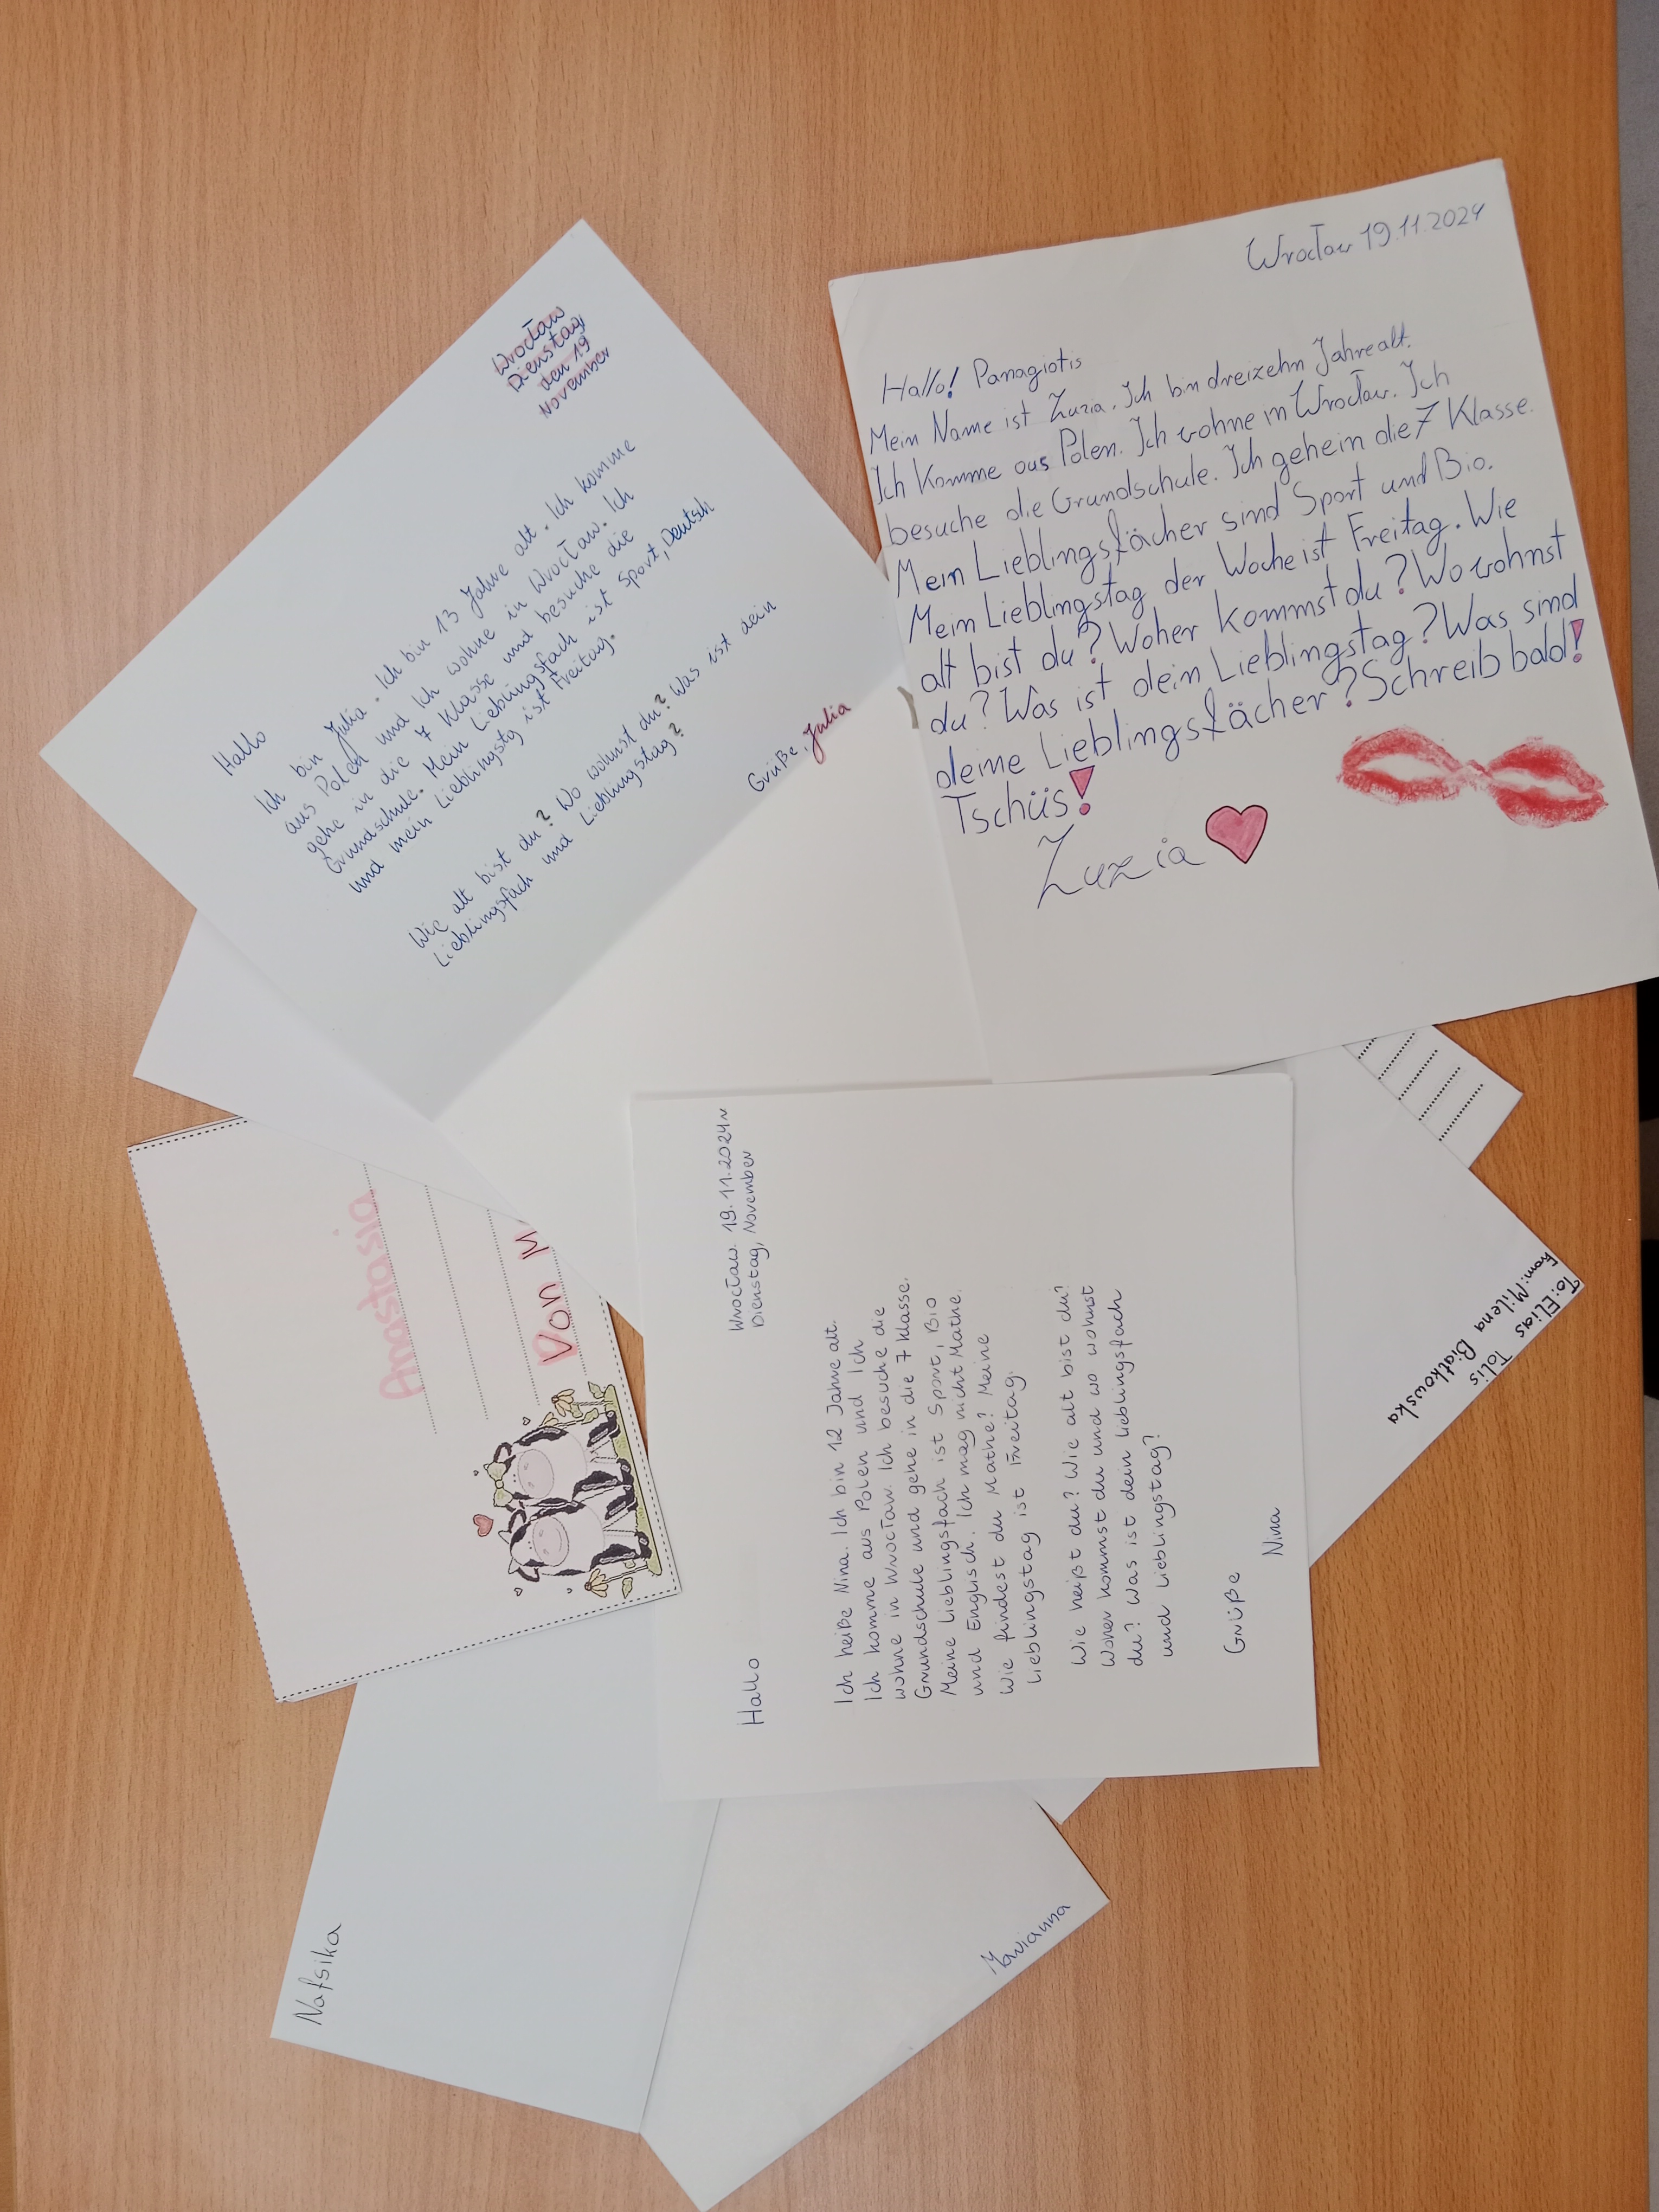 Wrocław
Dienstag,
den 19
November
Hallo
Ich bin Julia. Ich bin 13 Jahre alt. Ich komme
aus Polen und Ich wohne in Wrocław. Ich
gehe in die 7 Klasse und besuche die
Grundschule. Mein Lieblingsfach ist Sport, Deutsch
und mein Lieblingstg ist Freitag.
Wie alt bist du? Wo wohnst du? Was ist dein
Lieblingsfach und Lieblingstag?
Grüße, Julia
Wrocław 19.11.2024
Hallo! Panagiotis
Mein Name ist Zuzia. Ich bin dreizehn Jahre alt.
Ich Komme aus Polen. Ich wohne in Wrocław. Ich
besuche die Grundschule. Ich gehe in die 7 Klasse.
Mein Lieblingsfächer sind Sport und Bio.
Mein Lieblingstag der Woche ist Freitag. Wie
alt bist du? Woher kommst du? Wo wohnst
du? Was ist dein Lieblingstag? Was sind
deine Lieblingsfächer? Schreib bald!
Tschüs!
Zuzia
Anastasia
Von M
Wrocław. 19.11.2024r
Dienstag, November
Hallo
Ich heiße Nina. Ich bin 12 Jahre alt.
Ich komme aus Polen und Ich
wohne in Wrocław. Ich besuche die
Grundschule und gehe in die 7 klasse.
Meine Lieblingsfach ist Sport, Bio
und Englisch. Ich mag nicht Mathe.
Wie findest du Mathe? Meine
Lieblingstag ist Freitag.
Wie heißt du? Wie alt bist du?
Woher kommst du und wo wohnst
du? Was ist dein lieblingsfach
und lieblingstag?
Grüße
Nina
To: Elias Tolis
From: Milena Białkowska
Nafsika
Marianna